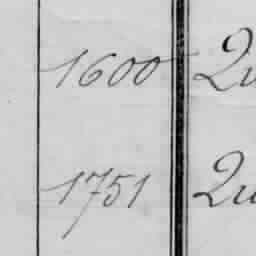 1600 Qu
1751 Qu